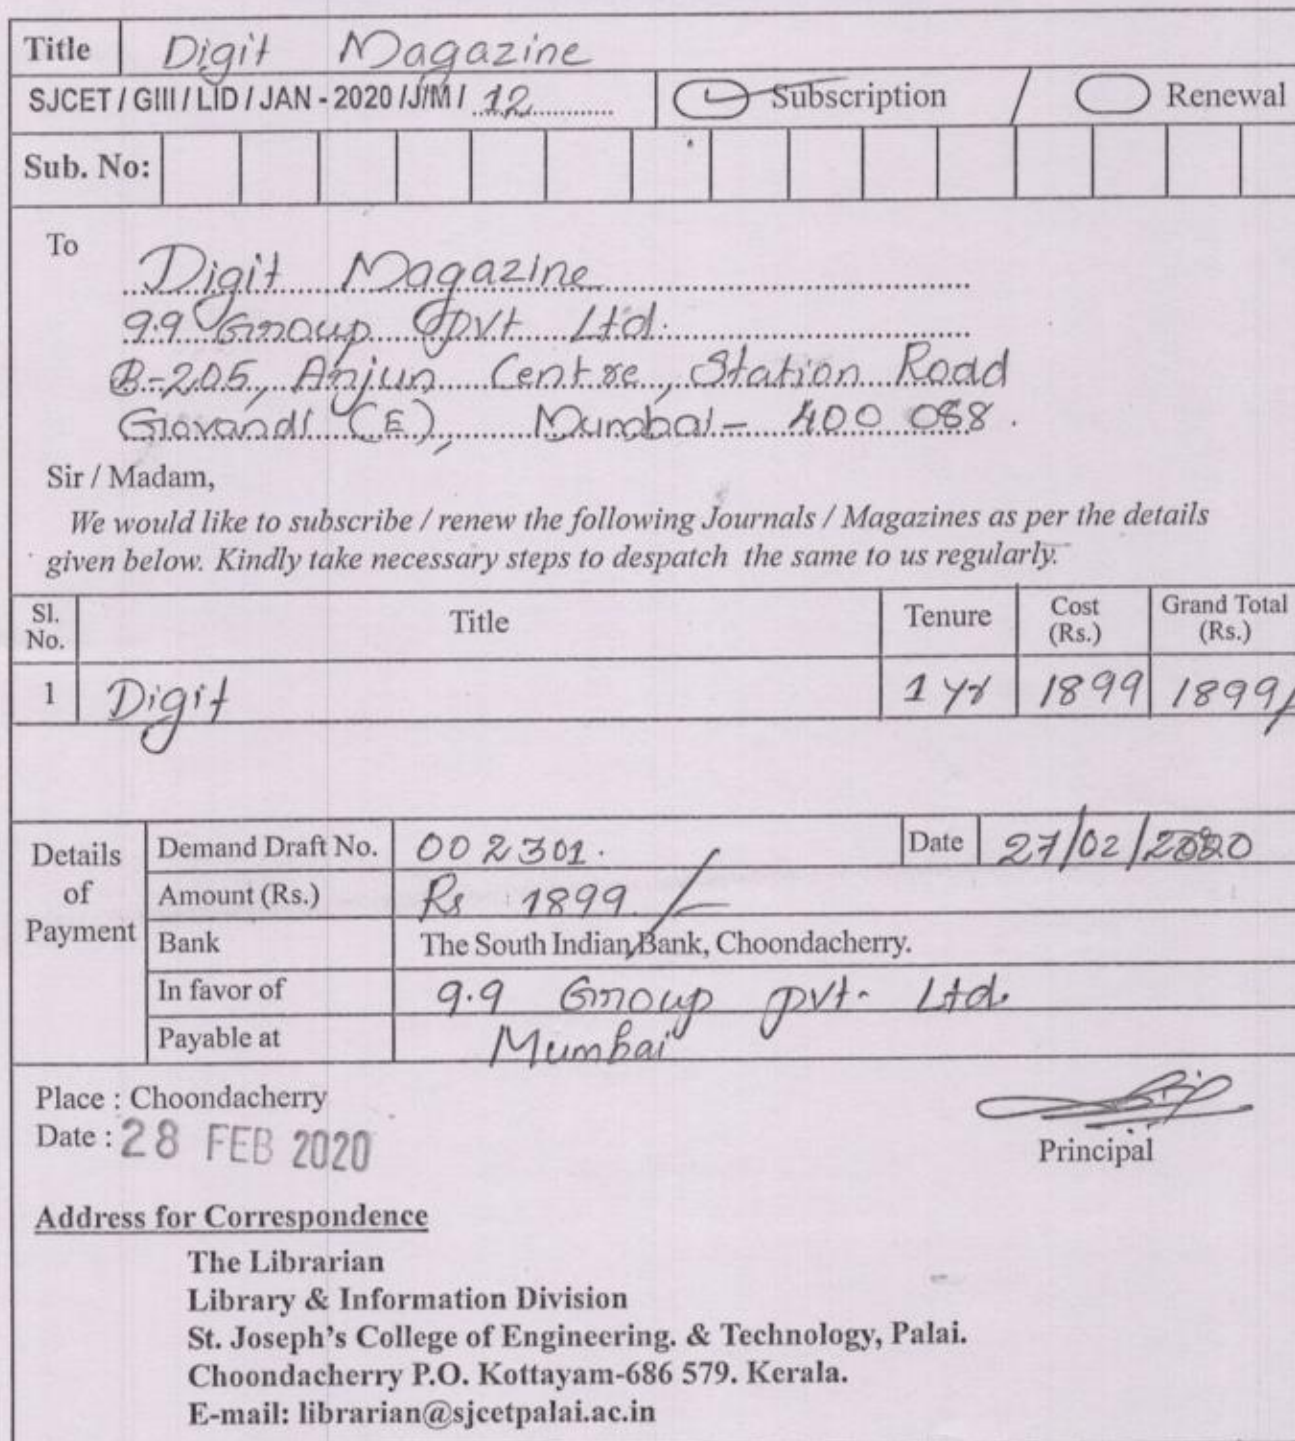 Title Digit Magazine
SJCET / GIII / LID / JAN - 2020 /J/M/ 12 Subscription / Renewal
Sub. No:
To
Digit Magazine
9.9 Group pvt Ltd.
B-205, Arjun Centre, Station Road
Govandi (E), Mumbai - 400 088.
Sir / Madam,
We would like to subscribe / renew the following Journals / Magazines as per the details
given below. Kindly take necessary steps to despatch the same to us regularly.
Sl. No. Title Tenure Cost (Rs.) Grand Total (Rs.)
1 Digit 1 yr 1899 1899/
Details of Payment
Demand Draft No. 002301. Date 27/02/2020
Amount (Rs.) Rs 1899/-
Bank The South Indian Bank, Choondacherry.
In favor of 9.9 Group pvt. Ltd.
Payable at Mumbai
Place : Choondacherry
Date : 28 FEB 2020
Principal
Address for Correspondence
The Librarian
Library & Information Division
St. Joseph's College of Engineering. & Technology, Palai.
Choondacherry P.O. Kottayam-686 579. Kerala.
E-mail: librarian@sjcetpalai.ac.in